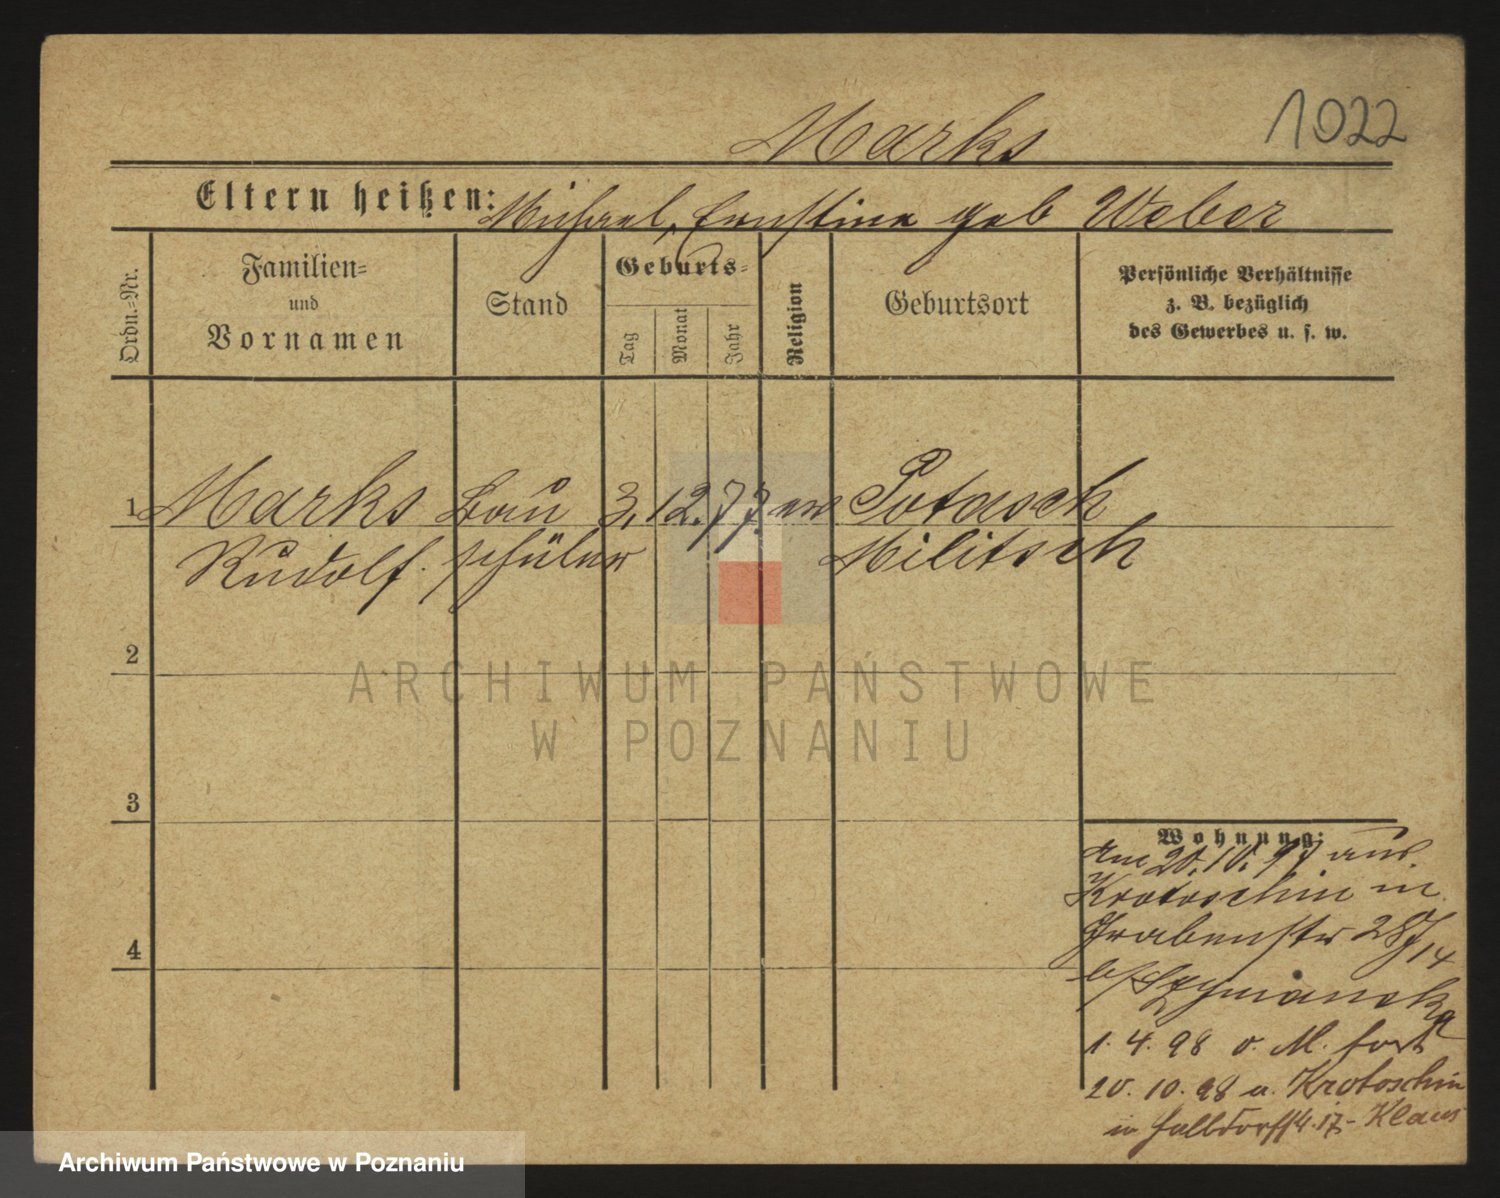 1022
Marks
Eltern heißen: Michael, Ernstine geb Weber
Ordn.=Nr.
Familien=
und
Vornamen
Stand
Geburts=
Tag
Monat
Jahr
Religion
Geburtsort
Persönliche Verhältnisse
z. B. bezüglich
des Gewerbes u. s. w.
1 Marks Bau 3. 12. 77. ev Potasch
Rudolf. schüler Militsch
2
ARCHIWUM PAŃSTWOWE
W POZNANIU
3
Wohnung:
Am 20. 10. 97 aus.
Krotoschin in
Grabenstr 28/14
b/
1. 4. 98 o. M. fort
20. 10. 98 a. Krotoschin
in 17. Klaus
4
Archiwum Państwowe w Poznaniu